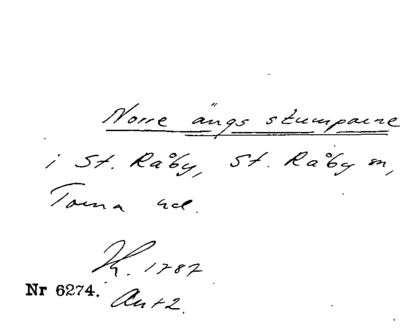 Norre ängs stumparne
i St. Råby, St. Råby sn,
Torna hd.
K. 1787
Nr 6274. Akt 2.